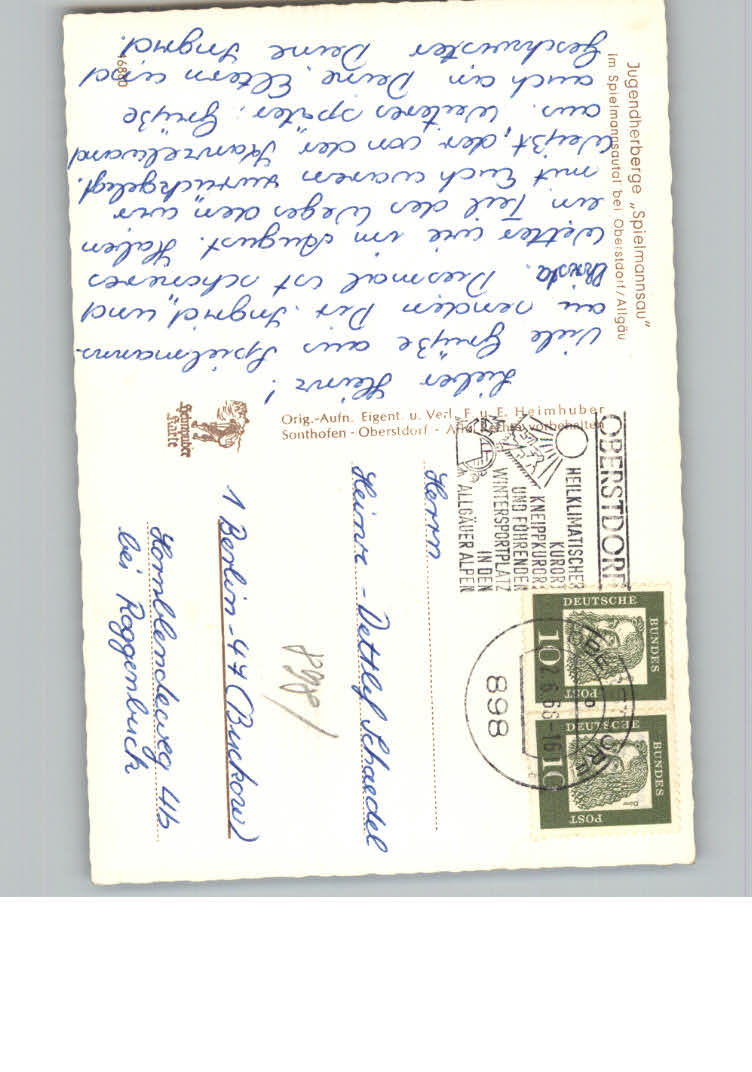 Jugendherberge „Spielmannsau"
im Spielmannsautal bei Oberstdorf/Allgäu
Lieber Heinz!
Viele Grüße aus Spielmanns-
au senden Dir Ingrid und
Christa. Diesmal ist schöneres
Wetter wie im August. Haben
ein Teil des Weges den wir
mit Euch waren zurückgelegt.
Weißt, der von der Kanzelwand
aus. Weiteres später. Grüße
auch an Deine Eltern und
Geschwister Deine Ingrid.
Orig.-Aufn. Eigent. u. Verl. F. u. E. Heimhuber
Sonthofen - Oberstdorf - Alle Rechte vorbehalten
Heimhuber
Karte
OBERSTDORF
HEILKLIMATISCHER
KURORT
KNEIPPKURORT
UND FÜHRENDER
WINTERSPORTPLATZ
IN DEN
ALLGÄUER ALPEN
898
DEUTSCHE
BUNDES
POST
10
DEUTSCHE
BUNDES
POST
10
Dürer
Herrn
Heinz - Dettlef Schaedel
1 Berlin - 47 (Buckow)
Hornblendeweg 41b
bei Roggenbuck